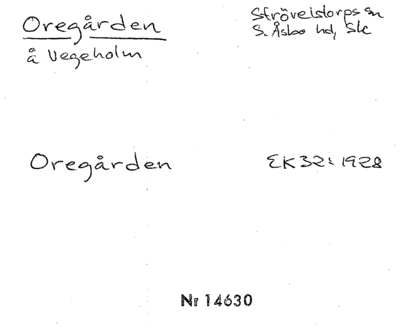 Oregården
å Vegeholm
Strövelstorps sn
S. Åsbo hd, Sk
Oregården
EK 32: 1928
Nr 14630